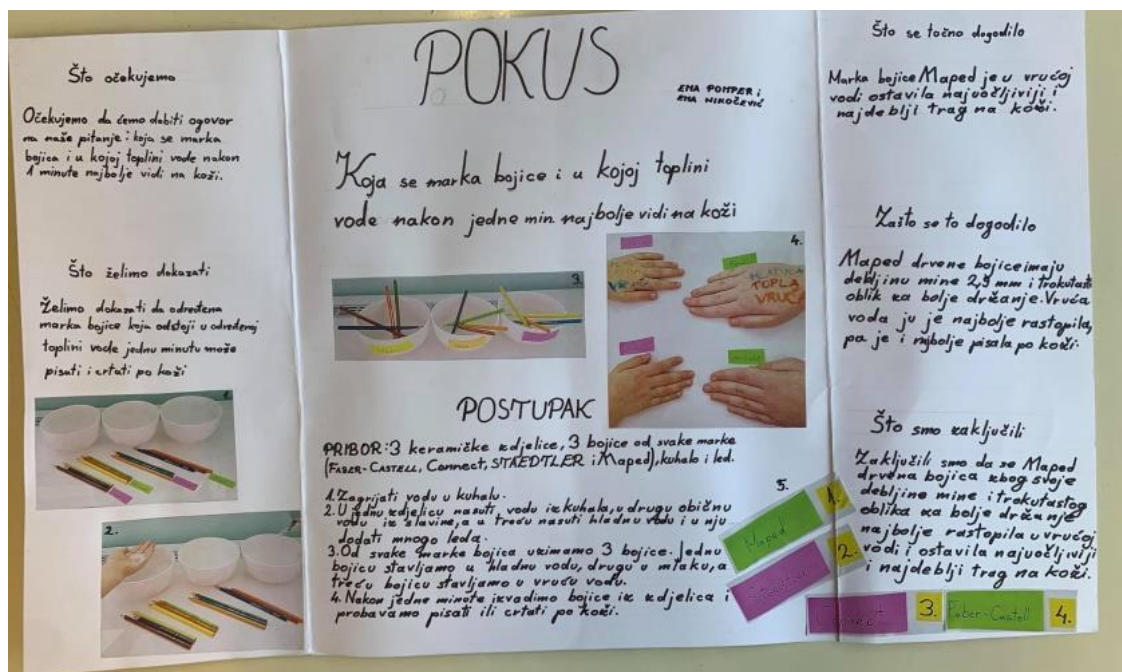 Što očekujemo
Očekujemo da ćemo dobiti ogovor
na naše pitanje: koja se marka
bojica i u kojoj toplini vode nakon
1 minute najbolje vidi na koži.
Što želimo dokazati
Želimo dokazati da određena
marka bojice koja odstoji u određenoj
toplini vode jednu minutu može
pisati i crtati po koži
1.
2.
POKUS
EMA POMPER i
EMA NIKOČEVIĆ
Koja se marka bojice i u kojoj toplini
vode nakon jedne min. najbolje vidi na koži
3.
4.
TOPLA
VRUĆA
POSTUPAK
PRIBOR: 3 keramičke zdjelice, 3 bojice od svake marke
(FABER-CASTELL, Connect, STAEDTLER i Maped), kuhalo i led.
1. Zagrijati vodu u kuhalu.
2. U jednu zdjelicu nasuti vodu iz kuhala, u drugu običnu
vodu iz slavine, a u treću nasuti hladnu vodu i u nju
dodati mnogo leda.
3. Od svake marke bojica uzimamo 3 bojice. Jednu
bojicu stavljamo u hladnu vodu, drugu u mlaku, a
treću bojicu stavljamo u vruću vodu.
4. Nakon jedne minute izvadimo bojice iz zdjelica i
probavamo pisati ili crtati po koži.
5.
Maped 1.
2.
Connect 3. Faber-Castell 4.
Što se točno dogodilo
Marka bojice Maped je u vrućoj
vodi ostavila najuočljiviji i
najdeblji trag na koži.
Zašto se to dogodilo
Maped drvene bojice imaju
debljinu mine 2,9 mm i trokutasti
oblik za bolje držanje. Vruća
voda ju je najbolje rastopila,
pa je i najbolje pisala po koži.
Što smo zaključili
Zaključili smo da se Maped
drvena bojica zbog svoje
debljine mine i trokutastog
oblika za bolje držanje
najbolje rastopila u vrućoj
vodi i ostavila najuočljiviji
i najdeblji trag na koži.